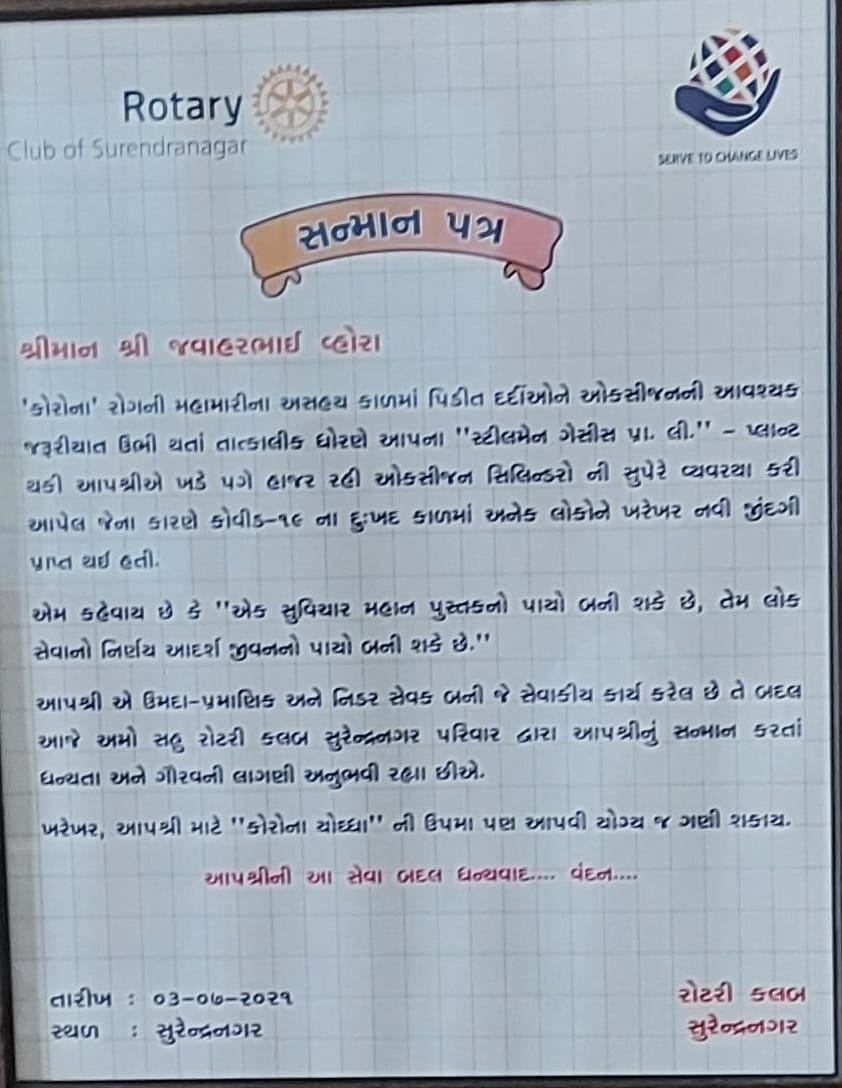 Rotary
Club of Surendranagar
SERVE TO CHANGE LIVES
સન્માન પત્ર
શ્રીમાન શ્રી જવાહરભાઈ વ્હોરા
'કોરોના' રોગની મહામારીના અસહય કાળમાં પિડીત દર્દીઓને ઓકસીજનની આવશ્યક
જરૂરીયાત ઉભી થતાં તાત્કાલીક ધોરણે આપના "સ્ટીલમેન ગેસીસ પ્રા. લી." – પ્લાન્ટ
થકી આપશ્રીએ ખડે પગે હાજર રહી ઓકસીજન સિલિન્ડરો ની સુપેરે વ્યવસ્થા કરી
આપેલ જેના કારણે કોવીડ–૧૯ ના દુઃખદ કાળમાં અનેક લોકોને ખરેખર નવી જીંદગી
પ્રાપ્ત થઈ હતી.
એમ કહેવાય છે કે "એક સુવિચાર મહાન પુસ્તકનો પાયો બની શકે છે, તેમ લોક
સેવાનો નિર્ણય આદર્શ જીવનનો પાયો બની શકે છે."
આપશ્રી એ ઉમદા–પ્રમાણિક અને નિડર સેવક બની જે સેવાકીય કાર્ય કરેલ છે તે બદલ
આજે અમો સહુ રોટરી કલબ સુરેન્દ્રનગર પરિવાર દ્વારા આપશ્રીનું સન્માન કરતાં
ધન્યતા અને ગૌરવની લાગણી અનુભવી રહ્યા છીએ.
ખરેખર, આપશ્રી માટે "કોરોના યોધ્ધા" ની ઉપમા પણ આપવી યોગ્ય જ ગણી શકાય.
આપશ્રીની આ સેવા બદલ ધન્યવાદ.... વંદન....
તારીખ : ૦૩–૦૭–૨૦૨૧
રોટરી કલબ
સ્થળ : સુરેન્દ્રનગર
સુરેન્દ્રનગર